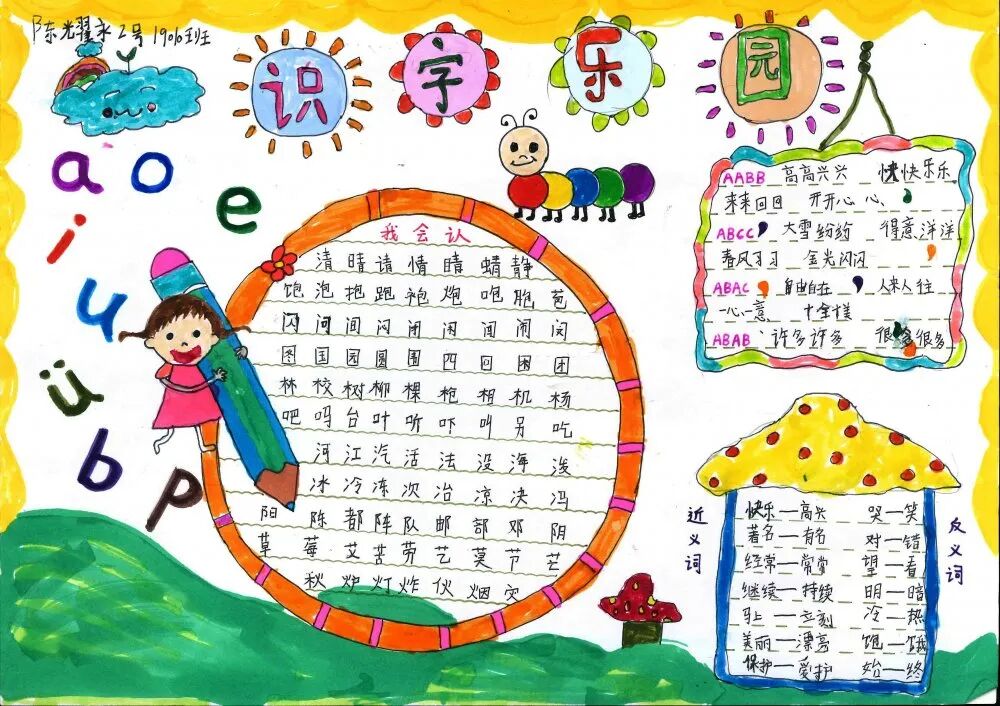 陈光翟永2号1906班
识字乐园
a o e
i
u
ü
b
p
我会认
清 晴 请 情 睛 蜻 静
饱 泡 抱 跑 袍 炮 咆 胞 苞
闪 问 间 闷 闭 闲 闻 闹 闵
图 国 园 圆 围 四 回 困 团
林 校 树 柳 棵 枪 相 机 杨
吧 吗 台 叶 听 吓 叫 另 吃
河 江 汽 活 法 没 海 泼
冰 冷 冻 次 冶 凉 决 冯
阳 陈 都 阵 队 邮 部 邓 阴
草 莓 艾 苦 劳 艺 莫 节 芒
秋 炉 灯 炸 伙 烟 灾
AABB 高高兴兴 快快乐乐
来来回回 开开心心
ABCC 大雪纷纷 得意洋洋
春风习习 金光闪闪
ABAC 自由自在 人来人往
一心一意 十全十美
ABAB 许多许多 很多很多
近义词
快乐—高兴
著名—有名
经常—常常
继续—持续
马上—立刻
美丽—漂亮
保护—爱护
反义词
哭—笑
对—错
望—看
明—暗
冷—热
饱—饿
始—终